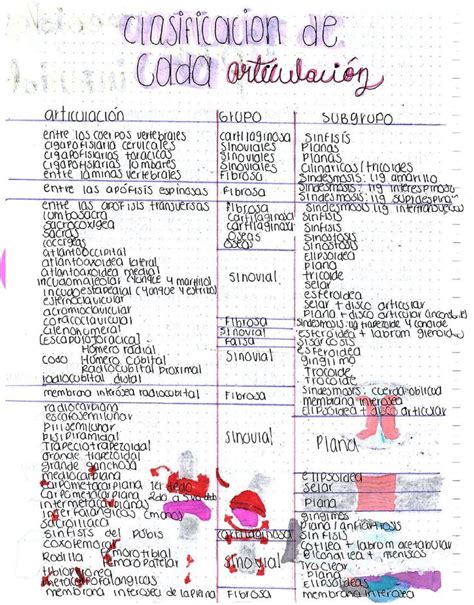 Clasificacion de
cada articulación
articulación GRUPO SUBGRUPO
entre los cuerpos vertebrales cartilaginosa Sinfisis
cigapofisiarias cervicales Sinoviales Planas
cigapofisiarias toracicas Sinoviales Planas
cigapofisiarias lumbares Sinoviales Cilindricas/tricoides
entre láminas vertebrales Fibrosa Sindesmosis: lig amarillo
entre las apófisis espinosas Fibrosa Sindesmosis: lig interespinoso
Sindesmosis: lig supraespin
entre las apofisis transversas Fibrosa Sindesmosis: lig intertransverso
lumbosacra cartilaginosa Sinfisis
sacrococcígea cartilaginosa Sinfisis
sacras Óseas Sinostosis
coccígeas Óseas Sinostosis
atlantooccipital Sinovial Elipsoidea
atlantoaxoidea lateral Plana
atlantoaxoidea medial Trocoide
incudomaleolar (yunque y martillo) Selar
incudoestapedial (yunque y estribo) esferoidea
esternoclavicular Selar + disco articular
acromioclavicular Plana + disco articular
coracoclavicular Fibrosa Sindesmosis: lig trapezoide y conoide
glenohumeral Sinovial esferoidea + labrum glenoideo
(Escapulotoracica) Falsa Sisarcosis
codo Húmero radial Sinovial esferoidea
Húmero cubital ginglimo
Radiocubital proximal Trocoide
radiocubital distal Trocoide
membrana interósea radiocubital Fibrosa Sindesmosis: cuerda oblicua
membrana interosea
radiocarpiana Sinovial Elipsoidea + disco articular
escafosemilunar Plana
pisipiramidal
Trapeciotrapezoidal
grande trapezoidal
grande ganchosa
mediocarpiana elipsoidea
carpometacarpiana 1er dedo Selar
carpometacarpiana 2do a 5to Plana
intermetacarpianas
interfalángicas (manos) ginglimos
sacroiliaca Plana/anfiartrosis
sinfisis del pubis cartilaginosa Sinfisis
coxofemoral Sinovial Cotilea + labrum acetabular
Rodilla Femorotibial Bicondilea + meniscos
Femoro patelar Troclear
tibioperonea Plana
metacarpofalangicas Elipsoideas
membrana interosea de la pierna Fibrosa membrana interosea